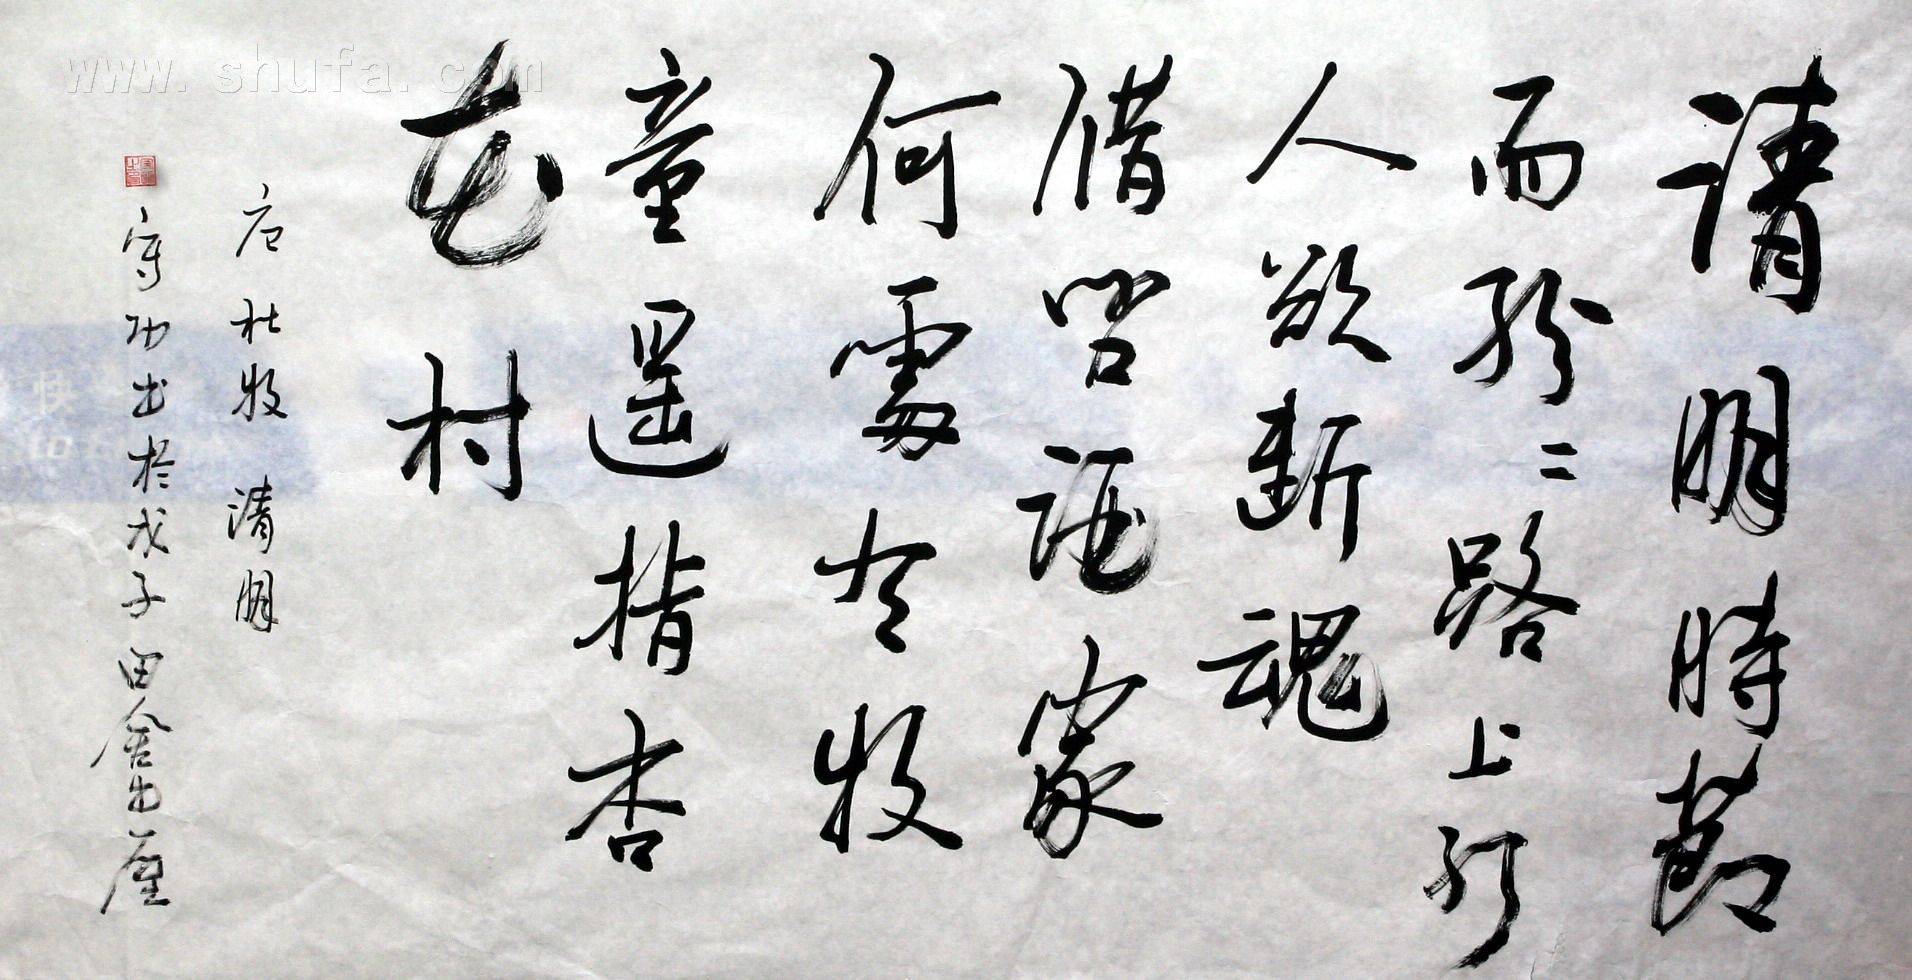 清明時節
雨紛〻路上行
人欲斷魂
借問酒家
何處有牧
童遙指杏
花村
唐 杜牧 清明
守功书於戊子田舍书屋
www.shufa.com